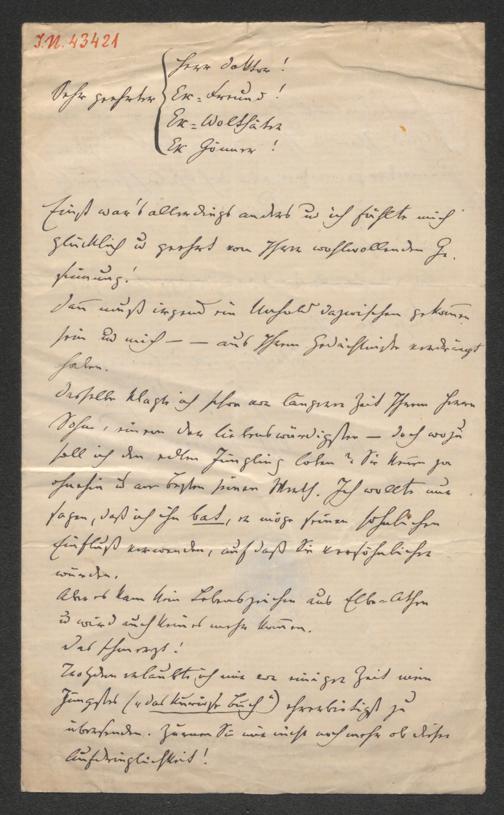 I.N. 43421
Herr Doktor!
Sehr geehrter Ex-Freund!
Ex-Wolthäter
Ex Gönner!
Einst war's allerdings anders u ich fühlte mich
glücklich u geehrt von Ihrer wohlwollenden Ge-
sinnung!
Dann muß irgend ein Unhold dazwischen gekommen
sein und mich — — aus Ihrem Gedächtniße verdrängt
haben.
Dasselbe klagte ich schon vor längerer Zeit Ihrem Herrn
Sohn, einem der liebenswürdigsten — doch wozu
soll ich den edlen Jüngling loben? Sie kennen ja
ohnehin u am besten seinen Werth. Ich wollte nur
sagen, daß ich ihn bat, er möge seinen sohnlichen
Einfluß verwenden, auf daß Sie versöhnlicher
würden.
Aber es kam kein Lebenszeichen aus Elbe-Athen
u wird auch keines mehr kommen.
Das schmerzt!
Trotzdem erlaubte ich mir vor einiger Zeit mein
Jüngstes („das kuriose Buch") ehrerbietigst zu
übersenden. Zürnen Sie mir nicht noch mehr ob dieser
Aufdringlichkeit!